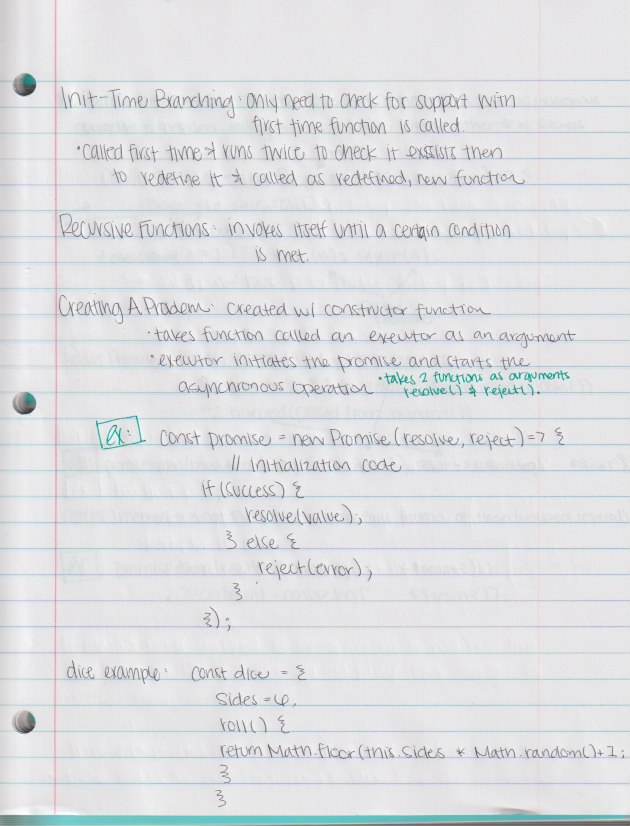 Init-Time Branching: only need to check for support with
first time function is called.
• called first time & runs twice to check it exsists then
to redefine it & called as redefined, new function
Recursive Functions: invokes itself until a certain condition
is met.
Creating A Prodem: created w/ constructor function
• takes function called an executor as an argument
• executor initiates the promise and starts the
asynchronous operation • takes 2 functions as arguments
resolve() & reject().
ex: const promise = new Promise (resolve, reject) => {
// initialization code
if (success) {
resolve(value);
} else {
reject(error);
}
});
dice example: const dice = {
Sides = 6,
roll() {
return Math.floor(this.sides * Math.random()+1;
}
}